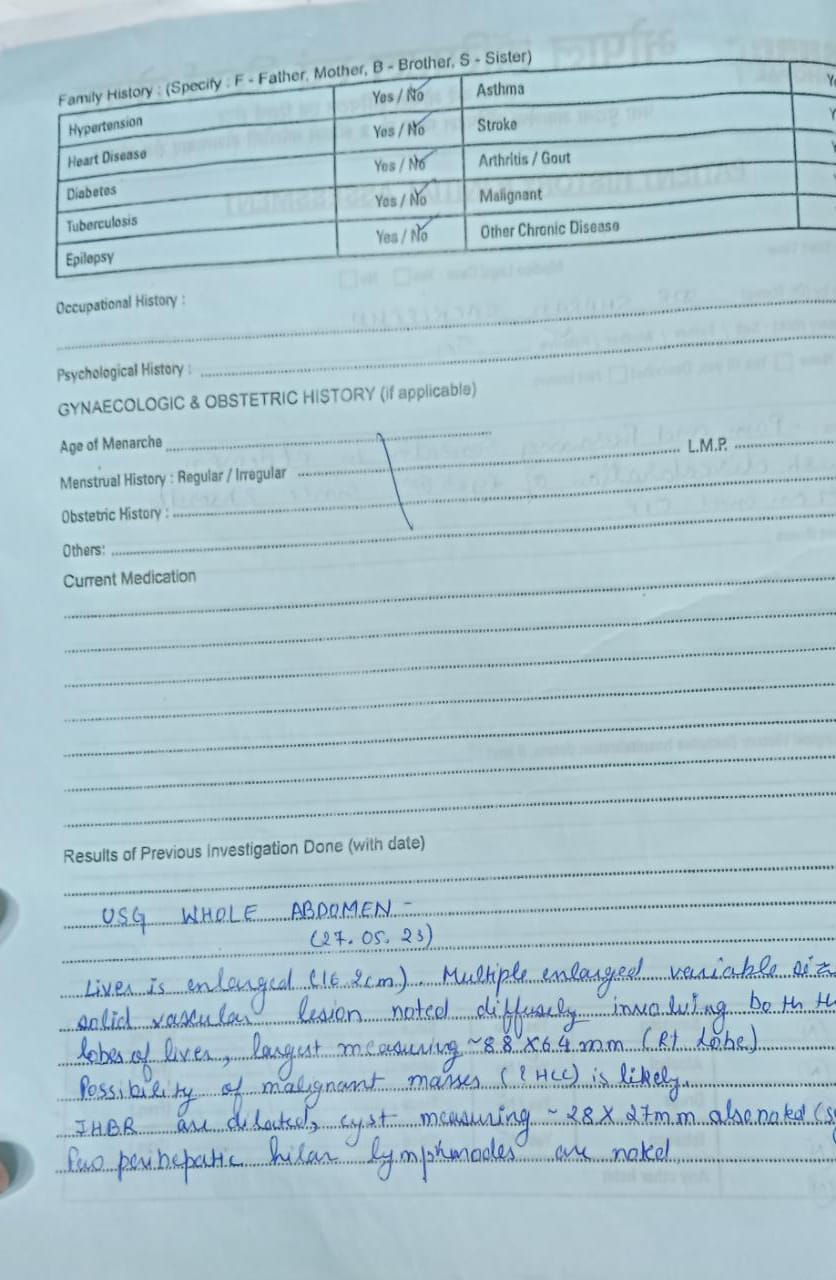 Family History : (Specify : F - Father, Mother, B - Brother, S - Sister)
Hypertension Yes / No Asthma
Heart Disease Yes / No Stroke
Diabetes Yes / No Arthritis / Gout
Tuberculosis Yes / No Malignant
Epilepsy Yes / No Other Chronic Disease
Occupational History :
Psychological History :
GYNAECOLOGIC & OBSTETRIC HISTORY (if applicable)
Age of Menarche
Menstrual History : Regular / Irregular L.M.P.
Obstetric History :
Others:
Current Medication
Results of Previous Investigation Done (with date)
USG WHOLE ABDOMEN -
(27.05.23)
Liver is enlarged (16.2cm). Multiple enlarged variable
solid vascular lesion noted diffusely involving both
lobes of liver, largest measuring ~88X64mm (Rt lobe)
Possibility of malignant masses (? HCC) is likely.
IHBR are dilated, cyst measuring ~28X27mm also noted
few perihepatic hilar lymphnodes are noted